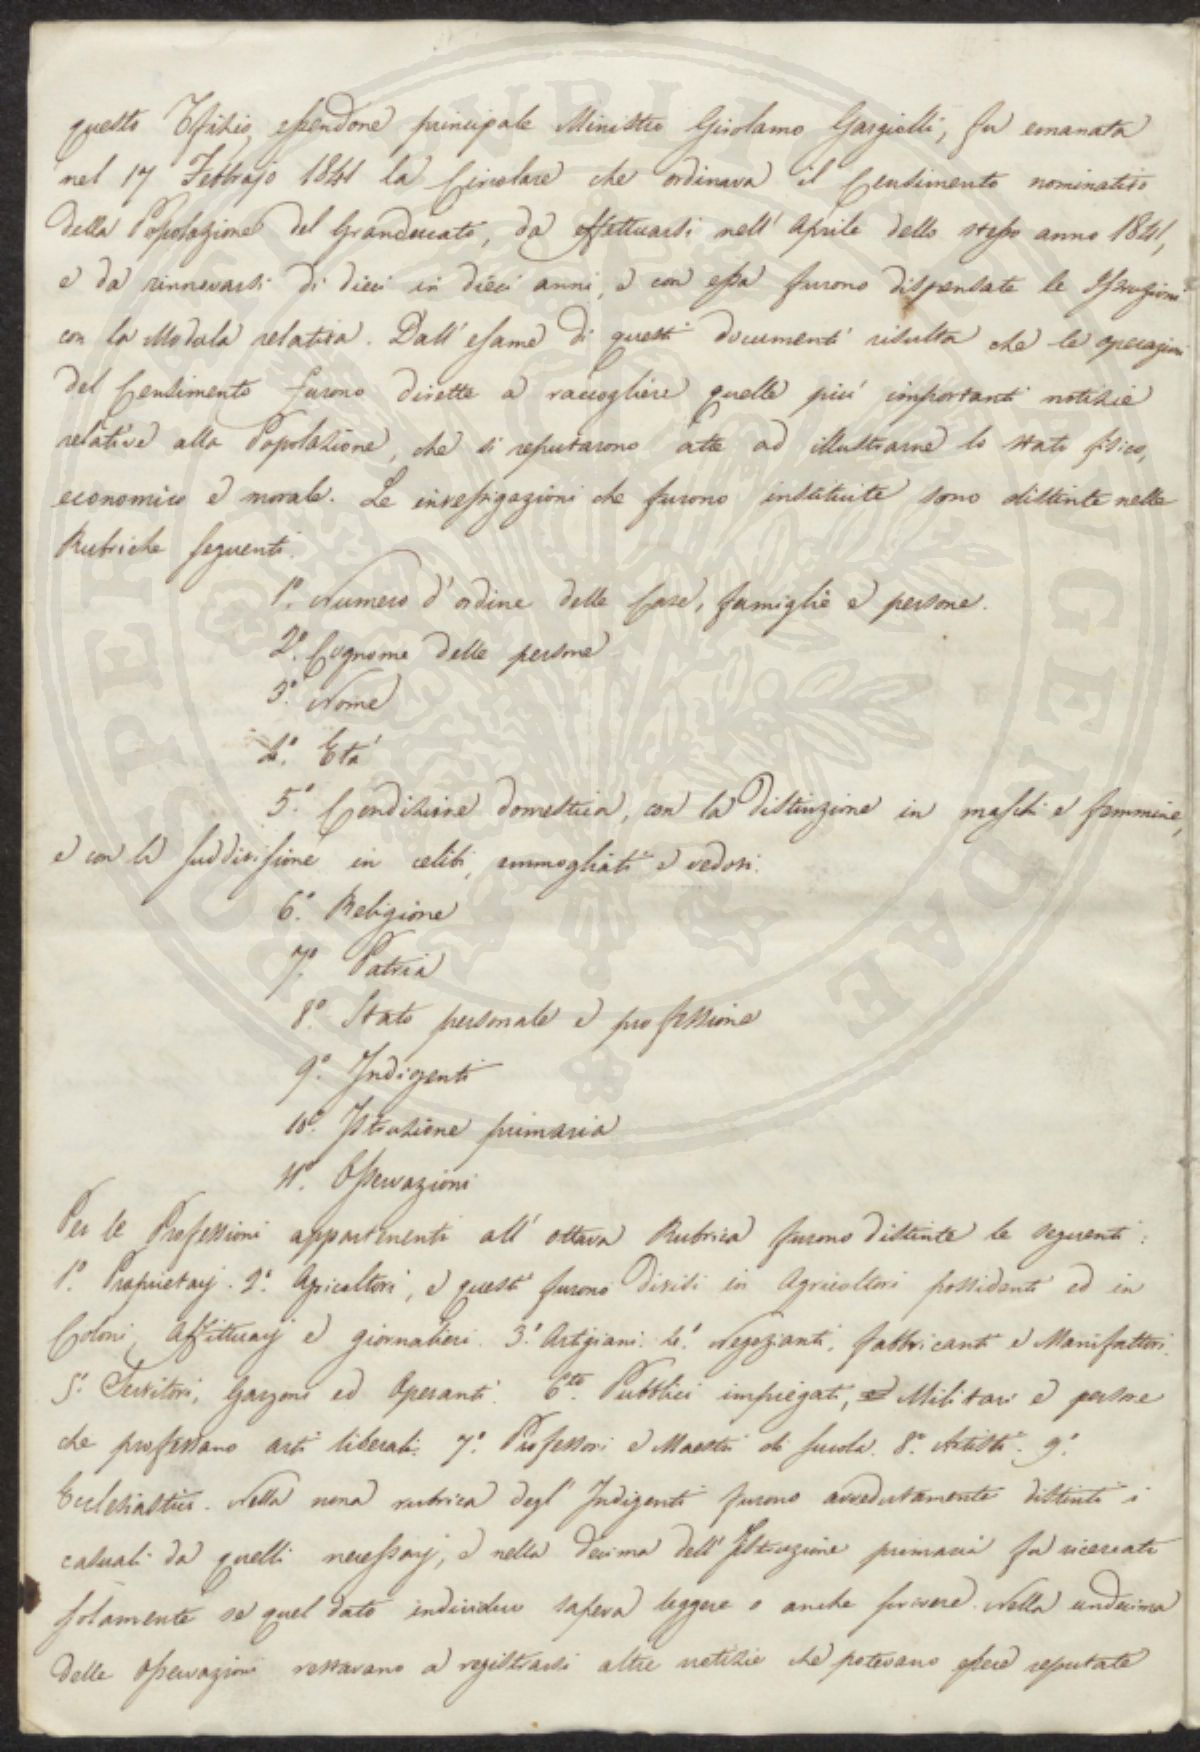 questo Ufizio, essendone principale Ministro Girolamo Gargiolli, fu emanata
nel 17 Febbrajo 1841 la Circolare che ordinava il Censimento nominativo
della Popolazione del Granducato, da effettuarsi nell' Aprile dello stesso anno 1841,
e da rinnovarsi di dieci in dieci anni, e con essa furono dispensate le Istruzioni
con la Modula relativa. Dall' esame di questi documenti risulta che le operazioni
del Censimento furono dirette a raccogliere quelle più importanti notizie
relative alla Popolazione, che si reputarono atte ad illustrarne lo stato fisico,
economico e morale. Le investigazioni che furono instituite sono distinte nelle
Rubriche seguenti.
1°. Numero d' ordine delle Case, famiglie e persone.
2°. Cognome delle persone
3°. Nome
4°. Età
5°. Condizione domestica, con la distinzione in maschi e femmine,
e con la suddivisione in celibi, ammogliati e vedovi.
6°. Religione
7°. Patria
8°. Stato personale e professione
9°. Indigenti
10°. Istruzione primaria
11°. Osservazioni
Per le Professioni appartenenti all' ottava Rubrica furono distinte le seguenti:
1°. Proprietarj. 2°. Agricoltori, e questi furono divisi in Agricoltori possidenti ed in
Coloni, Affittuarj e giornalieri. 3°. Artigiani. 4°. Negozianti, fabbricanti e Manifattori.
5°. Servitori, Garzoni ed Operanti. 6to. Pubblici impiegati, Militari e persone
che professano arti liberali. 7°. Professori e Maestri di scuola. 8°. Artisti. 9°.
Ecclesiastici. Nella nona rubrica degl' Indigenti furono avvedutamente distinti i
casuali da quelli necessarj, e nella decima dell' Istruzione primaria fu ricercato
solamente se quel dato individuo sapeva leggere o anche scrivere. Nella undecima
delle Osservazioni restavano a registrarsi altre notizie che potevano essere reputate
PER